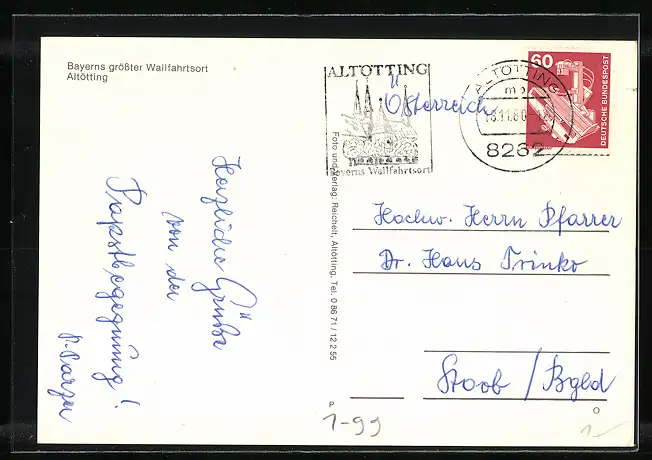 Bayerns größter Wallfahrtsort
Altötting
ALTÖTTING
Bayerns Wallfahrtsort
ALTÖTTING
mb
18.11.80
8262
60
DEUTSCHE BUNDESPOST
Österreich
Foto und Verlag: Reichelt, Altötting, Tel. 0 86 71 / 12 2 55
Herzliche Grüße
von der
Papstbegegnung!
Hochw. Herrn Pfarrer
Dr. Hans Trinko
Stoob / Bgld
P
1-99